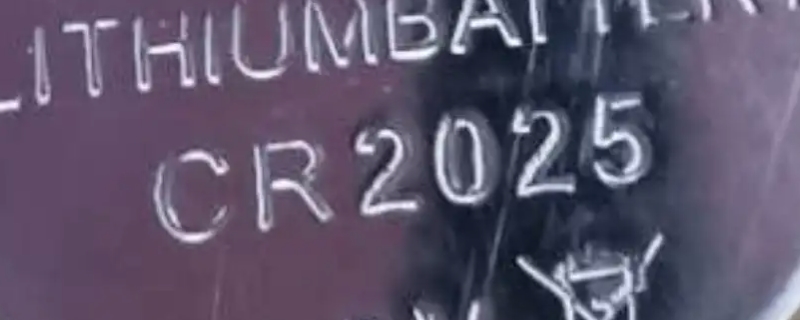 LITHIUMBATTERY
CR2025